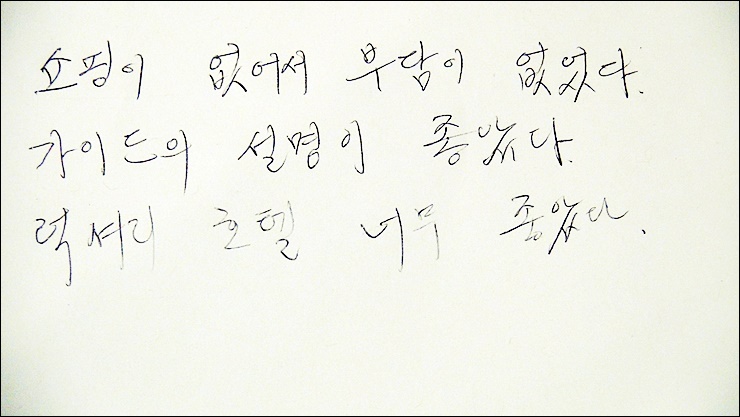 쇼핑이 없어서 부담이 없었다.
가이드의 설명이 좋았다.
럭셔리 호텔 너무 좋았다.